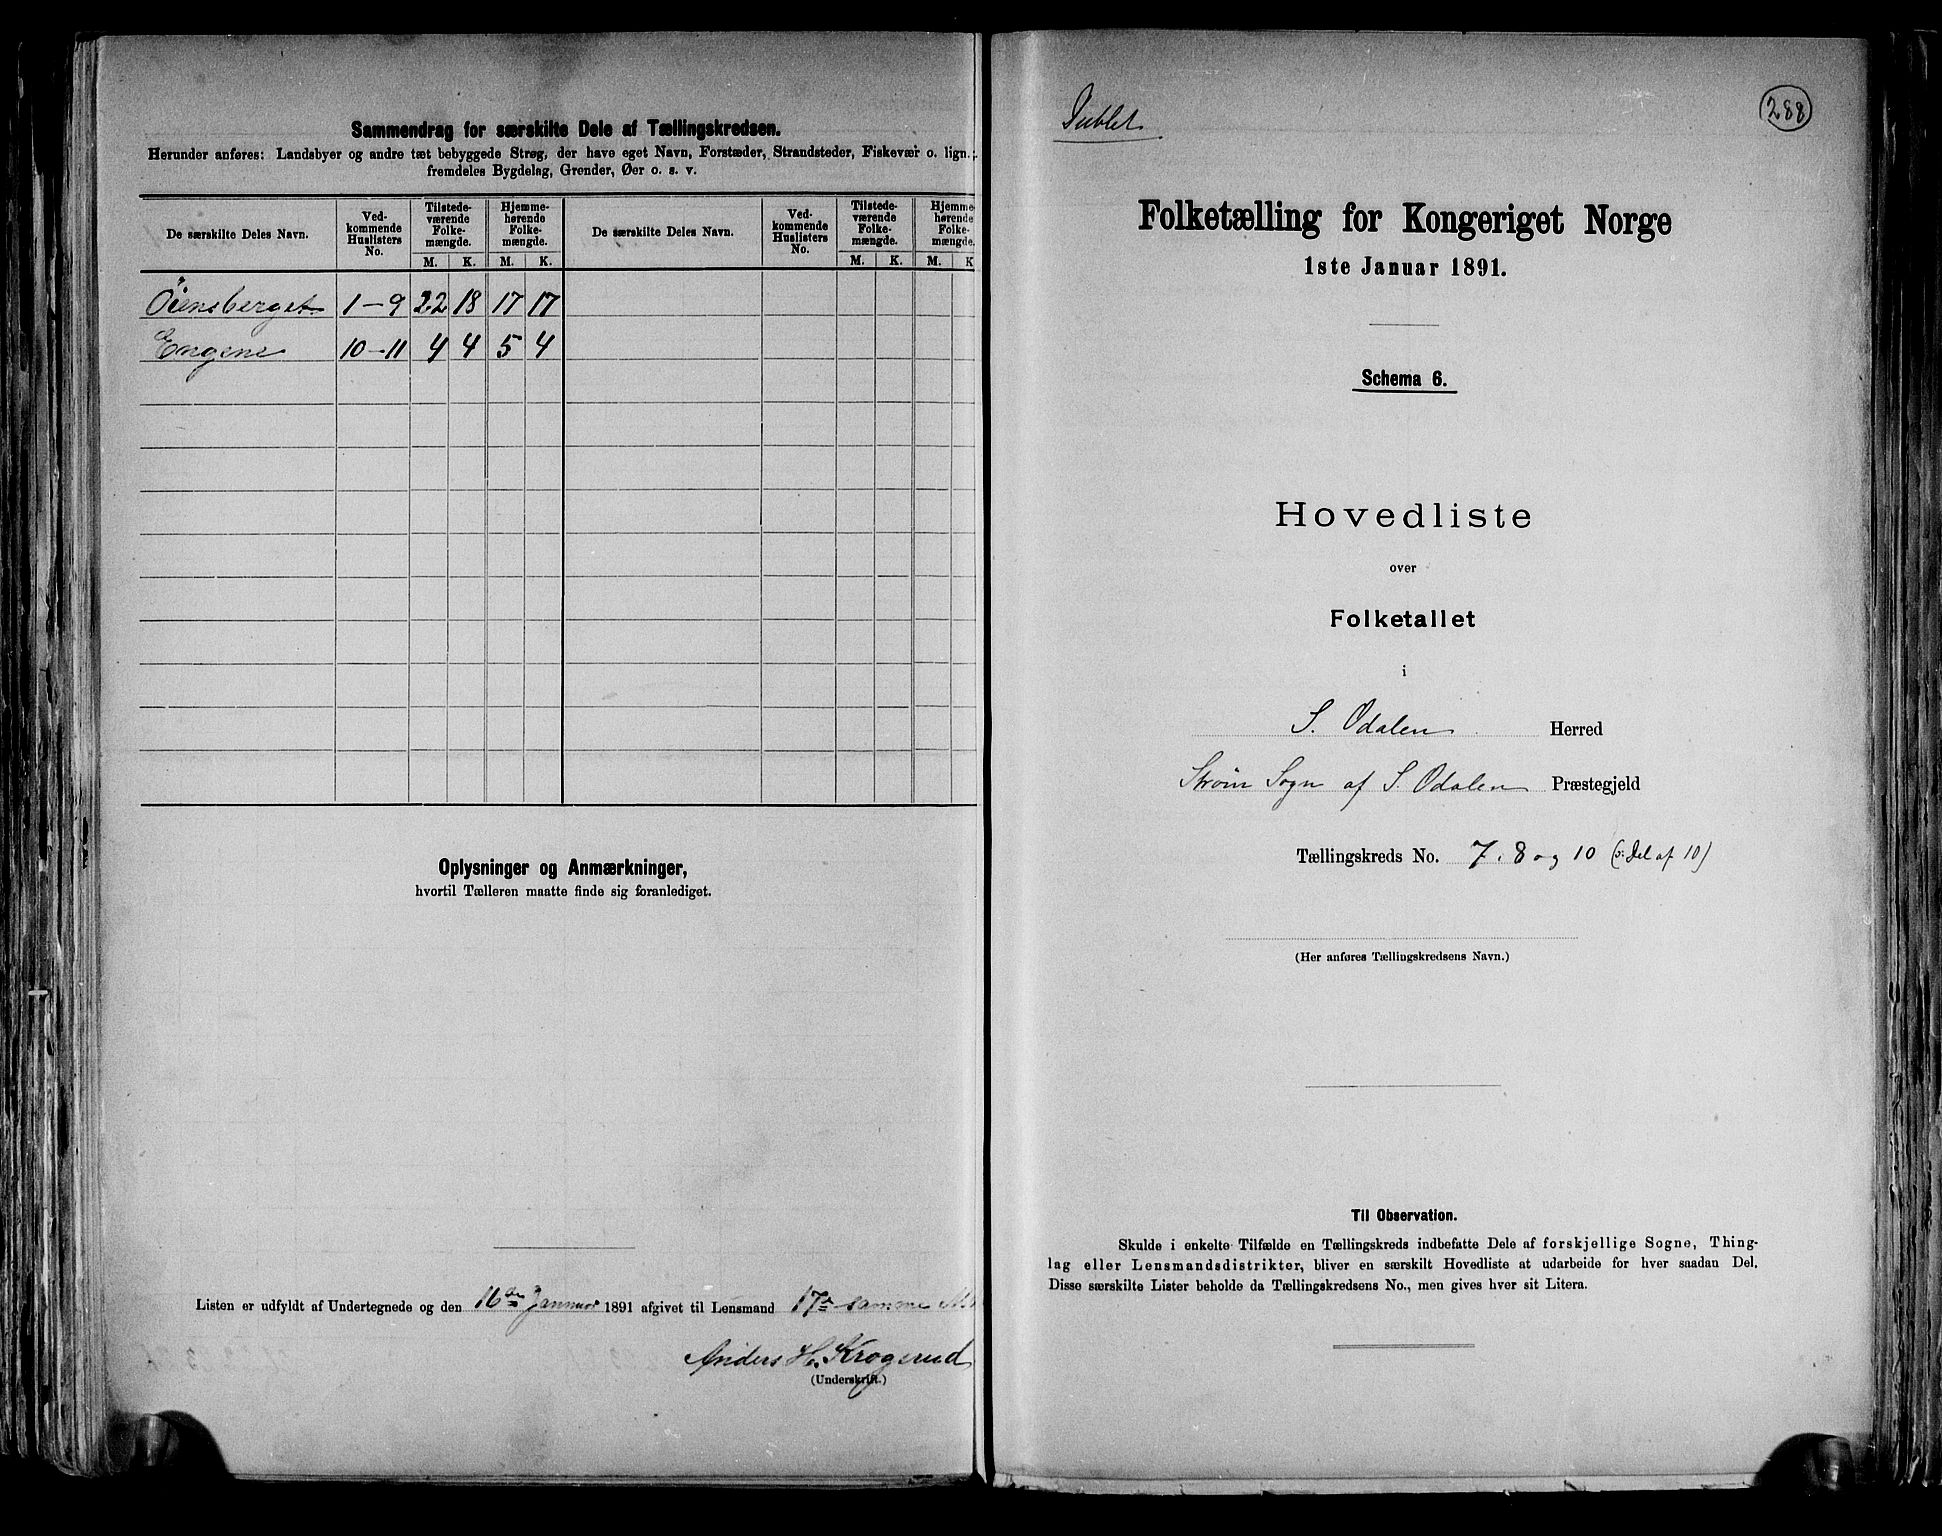 Sammendrag for særskilte Dele af Tællingskredsen.
Herunder anføres: Landsbyer og andre tæt bebyggede Strøg, der have eget Navn, Forstæder, Strandsteder, Fiskevær o. lign.;
fremdeles Bygdelag, Grender, Øer o. s. v.
De særskilte Deles Navn. Ved-kommende Huslisters No. Tilstede-værende Folke-mængde. Hjemme-hørende Folke-mængde. De særskilte Deles Navn. Ved-kommende Huslisters No. Tilstede-værende Folke-mængde. Hjemme-hørende Folke-mængde.
M. K. M. K. M. K. M. K
Öiensberget 1-9 22 18 17 17
Engene 10-11 4 4 5 4
Oplysninger og Anmærkninger,
hvortil Tælleren maatte finde sig foranlediget.
Listen er udfyldt af Undertegnede og den 16de Januar 1891 afgivet til Lensmand 17de samme
Anders H. Krogerud
(Underskrift.)
Dublet
288
Folketælling for Kongeriget Norge
1ste Januar 1891.
Schema 6.
Hovedliste
over
Folketallet
i
S. Odalen Herred
Strøm Sogn af S. Odalen Præstegjeld
Tællingskreds No. 7. 8 og 10 (o: Del af 10)
(Her anføres Tællingskredsens Navn.)
Til Observation.
Skulde i enkelte Tilfælde en Tællingskreds indbefatte Dele af forskjellige Sogne, Thing-
lag eller Lensmandsdistrikter, bliver en særskilt Hovedliste at udarbeide for hver saadan Del.
Disse særskilte Lister beholde da Tællingskredsens No., men gives hver sit Litera.